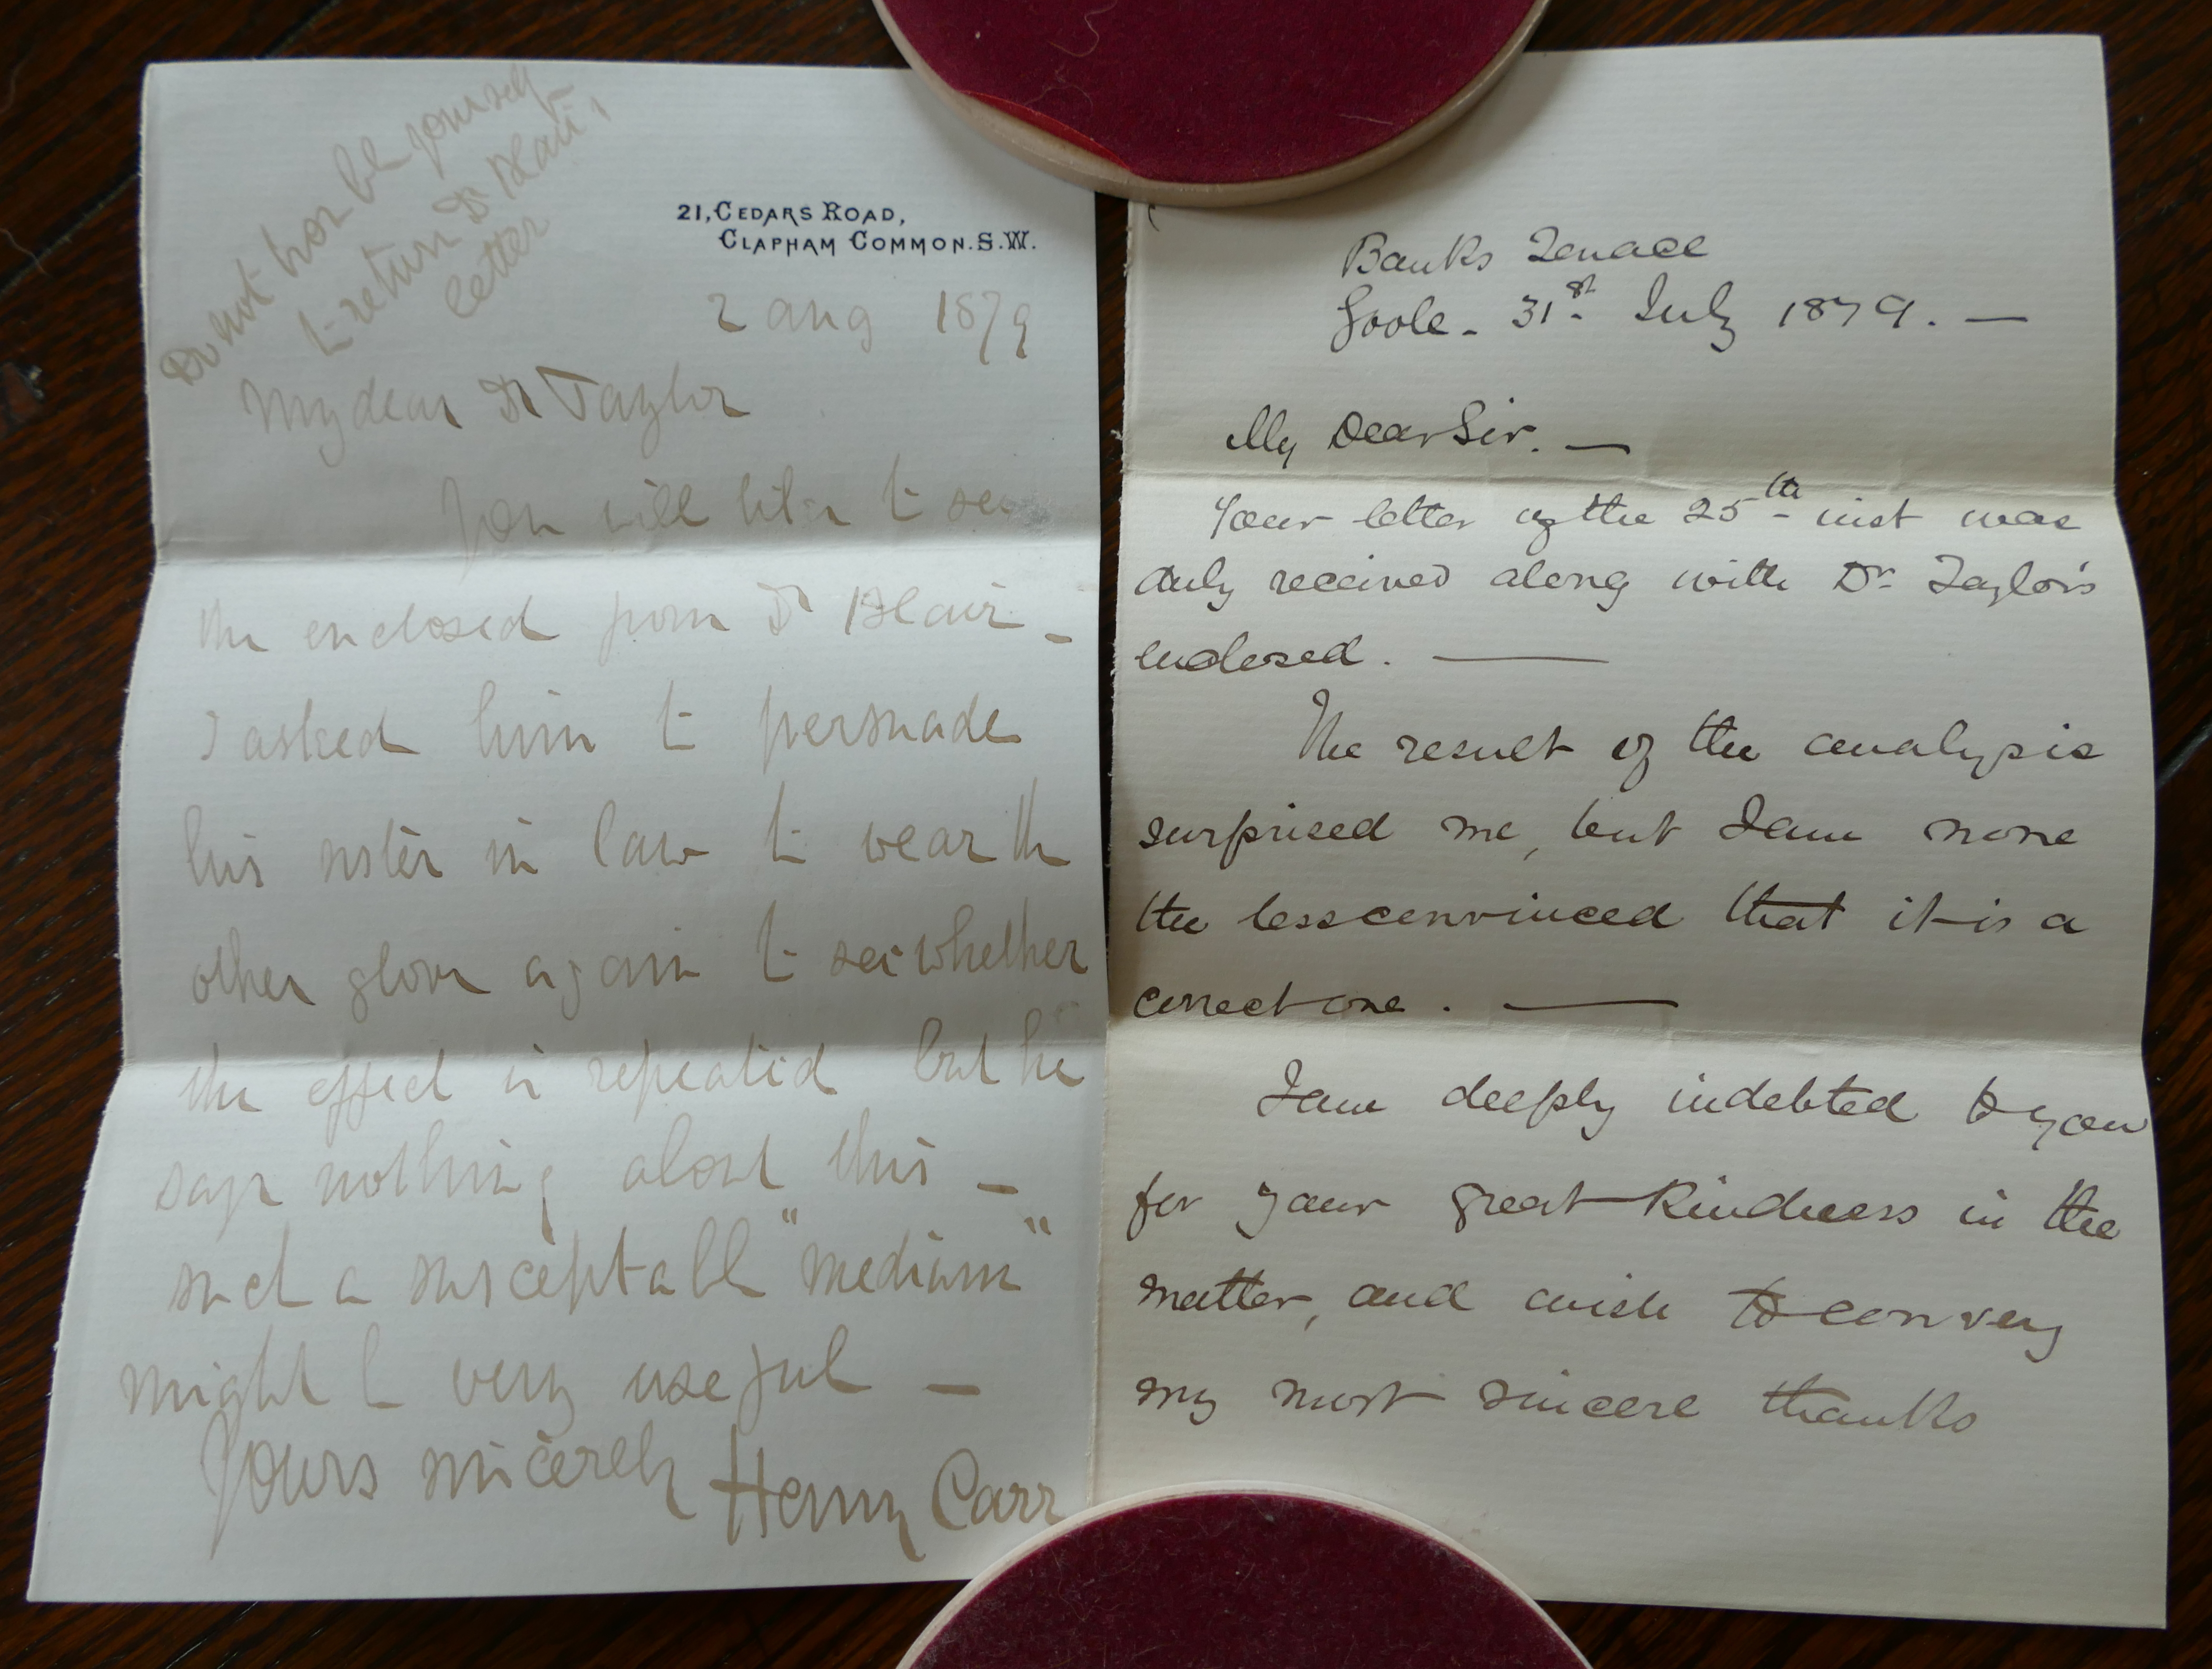 Do not trouble yourself
to return Dr Blair's
letter
21, CEDARS ROAD,
CLAPHAM COMMON. S.W.
2 Aug 1879
My dear Dr Taylor
You will like to see
the enclosed from Dr Blair -
I asked him to persuade
his sister in law to wear the
other glove again to see whether
the effect is repeated but he
says nothing about this -
such a susceptable "medium"
might be very useful -
Yours sincerely Henry Carr
Banks Terrace
Goole - 31st July 1879. —
My Dear Sir. —
Your letter of the 25th inst was
duly received along with Dr Taylor's
enclosed. —
The result of the analysis
surprised me, but I am none
the less convinced that it is a
correct one. —
I am deeply indebted to you
for your great kindness in the
matter, and wish to convey
my most sincere thanks